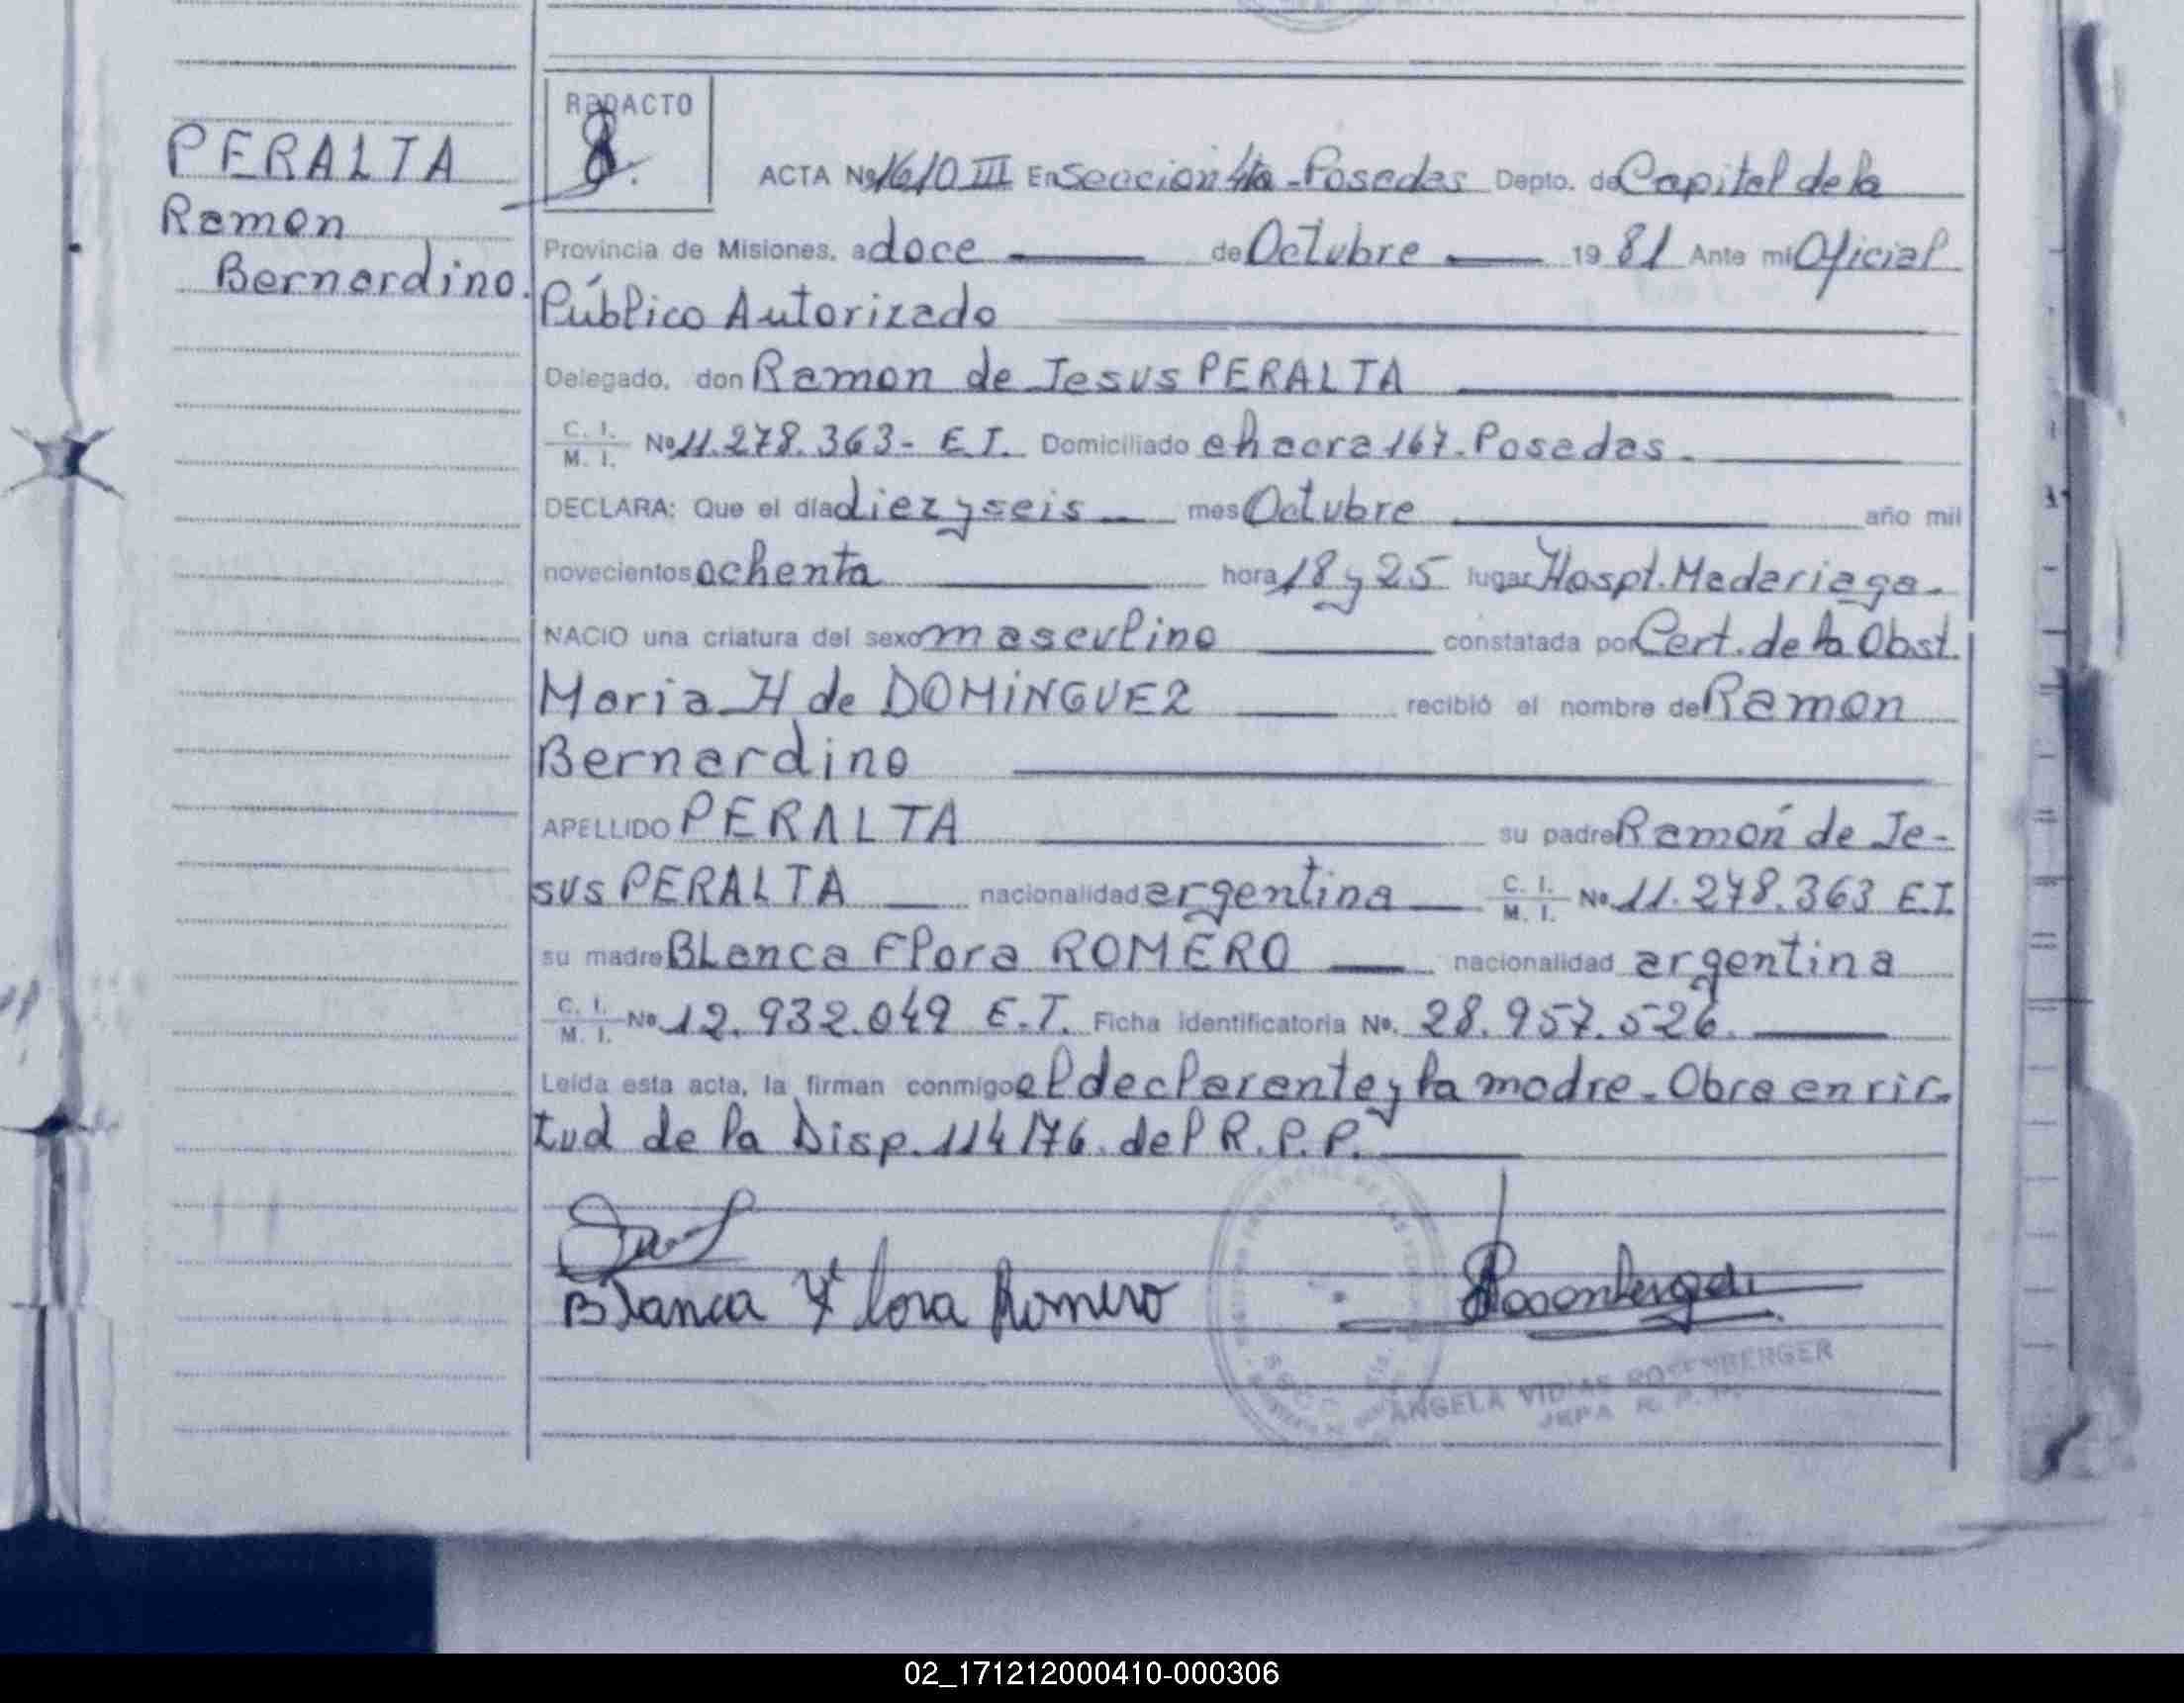 REDACTO
PERALTA
Ramon
Bernardino.
ACTA No 1610 III En Seccion 4ta - Posadas Depto. de Capital de la
Provincia de Misiones, a doce de Octubre 1981 Ante mi Oficial
Público Autorizado
Delegado, don Ramon de Jesus PERALTA
C. I. M. I. No 11.278.363 - E.I. Domiciliado chacra 167. Posadas.
DECLARA: Que el día diez y seis mes Octubre año mil
novecientos ochenta hora 18 y 25 lugar Hospt. Madariaga.
NACIO una criatura del sexo masculino constatada por Cert. de la Obst.
Maria H de DOMINGUEZ recibió el nombre de Ramon
Bernardino
APELLIDO PERALTA su padre Ramón de Je-
sus PERALTA nacionalidad argentina C. I. M. I. No. 11.278.363 E.I
su madre BLanca Flora ROMERO nacionalidad argentina
C. I. M. I. No 12.932.049 E.I. Ficha identificatoria No. 28.957.526.
Leída esta acta, la firman conmigo el declarante y la madre. Obra en vir-
tud de la Disp. 114/76. del R.P.P.
Blanca Flora Romero
ANGELA ROSEMBERGER
02_171212000410-000306